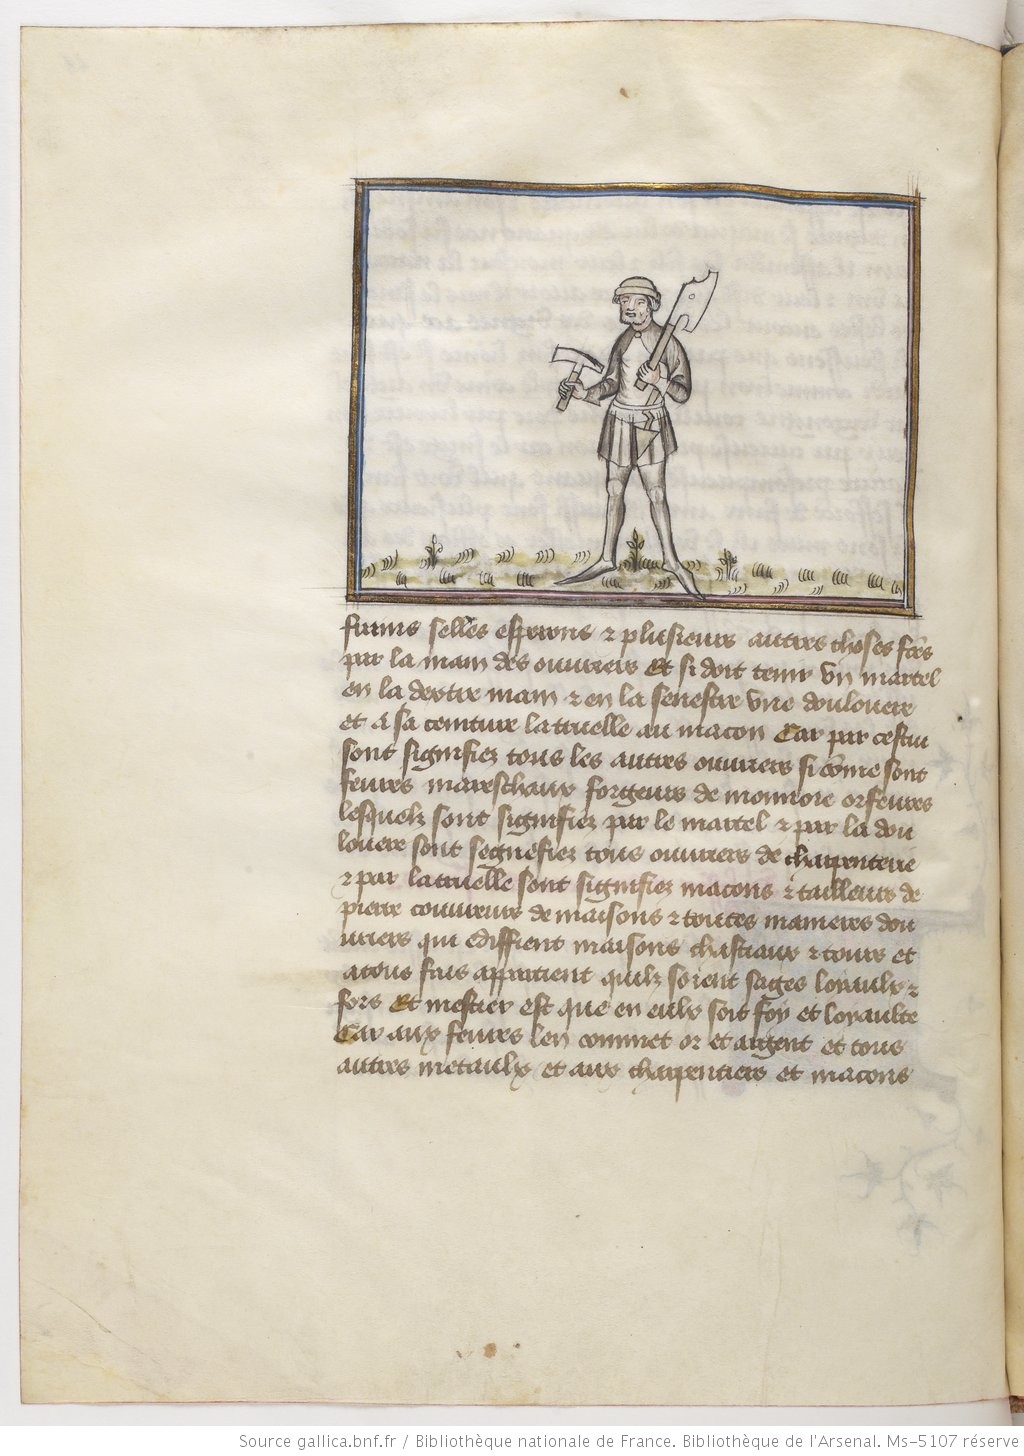 frains selles esperons ⁊ plusieurs autres choses fcẽs
par la main des ouuriers Et si doit tenir vn martel
en la dextre main ⁊ en la senestre vne doulouere
et a sa ceinture la truelle au macon Car par cestui
sont signifiez tous les autres ouuriers si cõme sont
feures mareschaux forgeurs de monnoie orfeures
lesquelz sont signifiez par le martel ⁊ par la dou
louere sont segnefiez tous ouuriers de charpenterie
⁊ par la truelle sont signifiez macons ⁊ tailleurs de
pierre couureurs de maisons ⁊ toutes manieres dou
uriers qui ediffient maisons chasteaux ⁊ tours et
a tous fais appartient quilz soient sages loyaulx ⁊
fors Et mestier est que en eulx soit foy et loyaulte
Car aux feures len commet or et argent et tous
autres metaulx et aux charpentiers et macons
Source gallica.bnf.fr / Bibliothèque nationale de France. Bibliothèque de l'Arsenal. Ms-5107 réserve